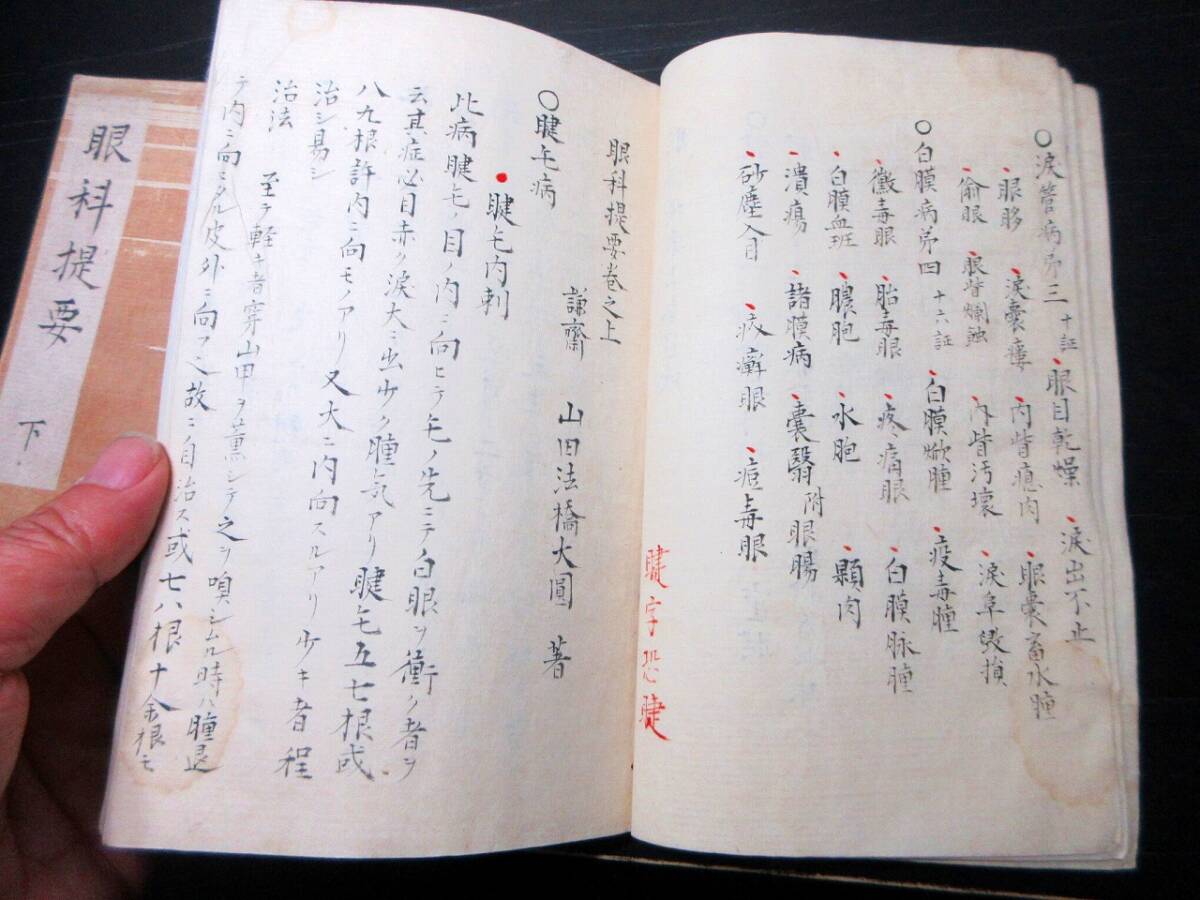 ○淚管病第三 十証 眼目乾燥 淚出不止
眼眵 淚囊瘻 內眥瘜肉 眼囊畜水腫
偷眼 眼眥爛蝕 內眥汚壞 淚阜毀損
○白膜病第四 十六証 白膜焮腫 疫毒腫
黴毒眼 胎毒眼 疼痛眼 白膜脉腫
白膜血斑 膿胞 水胞 顆肉
潰瘍 諸膜病 囊翳 附眼腸
砂塵入目 疥癬眼 痘毒眼
睫字恐睫
眼科提要卷之上
謙齋 山田法橋大圓 著
○睫毛病
睫毛內刺
此病睫毛ノ目ノ内ニ向ヒテ毛ノ先ニテ白眼ヲ衝ク者ヲ
云其症必目赤ク淚大ニ出少ク腫気アリ睫毛五七根或
八九根許内ニ向モノアリ又大ニ内向スルアリ少キ者程
治シ易シ
治法 至テ軽キ者穿山甲ヲ薫シテ之ヲ嗅シムル時ハ腫退
テ内ニ向ヒタル皮外ニ向フ之故ニ自治ス或七八根十余根モ
眼科提要 下